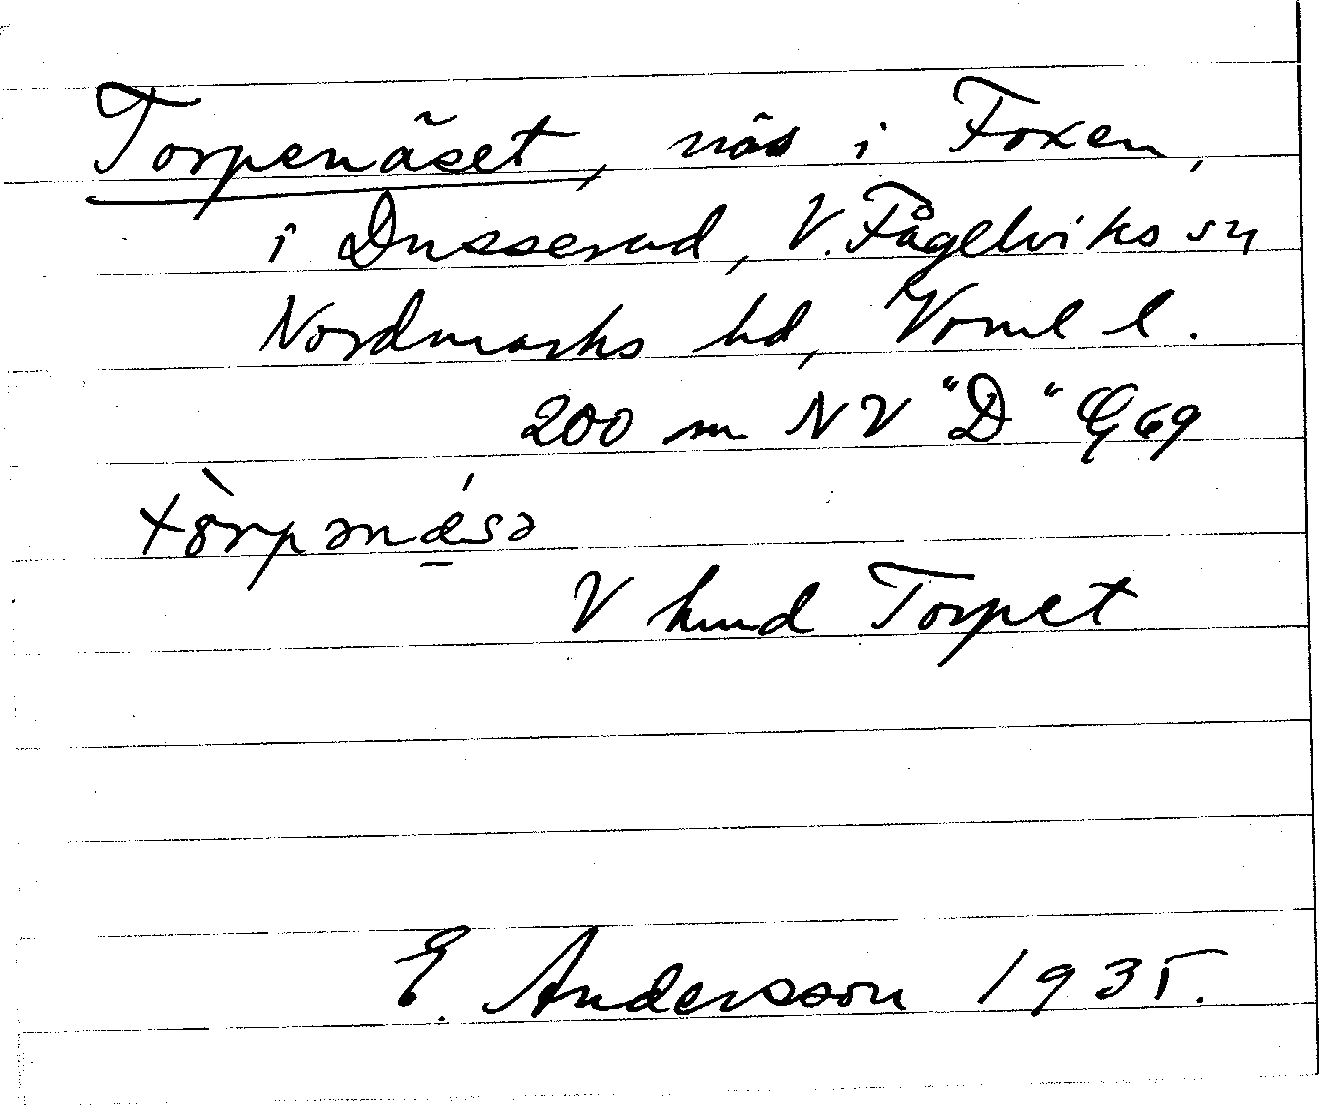 Torpenäset, näs i Foxen,
i Dusserud, V. Fågelviks sn
Nordmarks hd, Vrml l.
200 m NV "D" G69
tòrpənǽsə
V hmd Torpet
E. Andersson 1935.